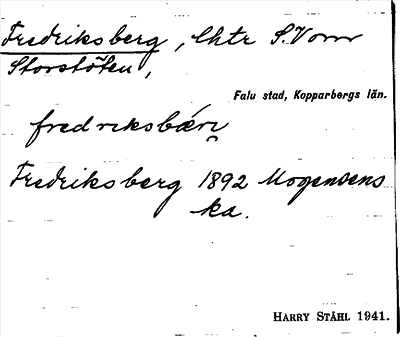 Fredriksberg, lhtr S. Vom
Storstöten,
Falu stad, Kopparbergs län.
fredriksbärj
Fredriksberg 1892 Mogensens
ka.
HARRY STÅHL 1941.